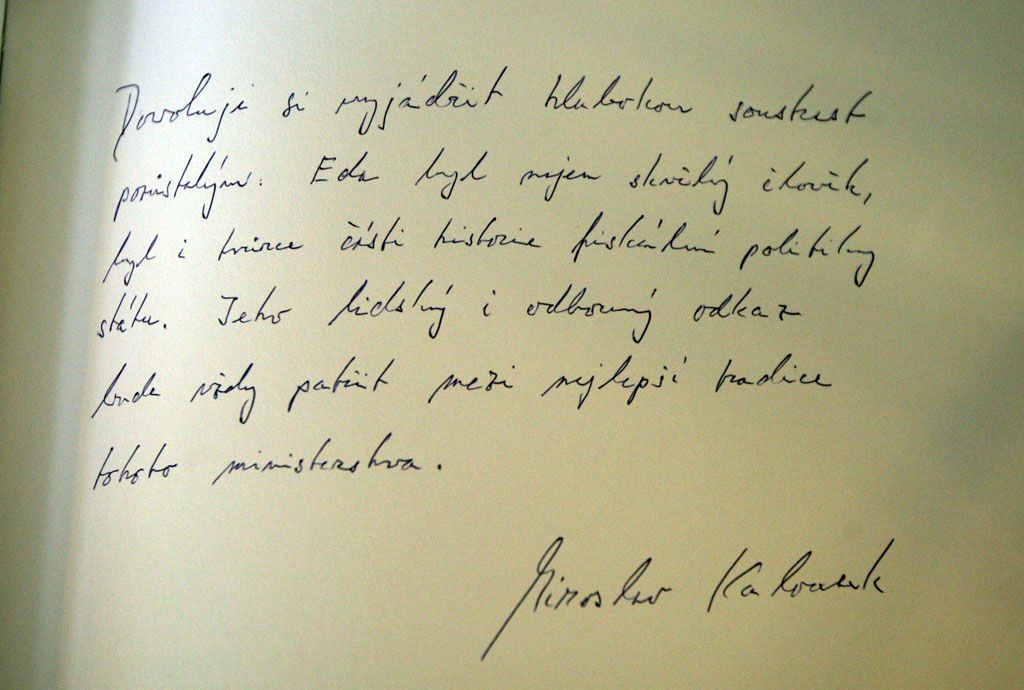 Dovoluji si vyjádřit hlubokou soustrast
pozůstalým. Eda byl nejen skvělý člověk,
byl i tvůrce části historie fiskální politiky
státu. Jeho lidský i odborný odkaz
bude vždy patřit mezi nejlepší tradice
tohoto ministerstva.
Miroslav Kalousek